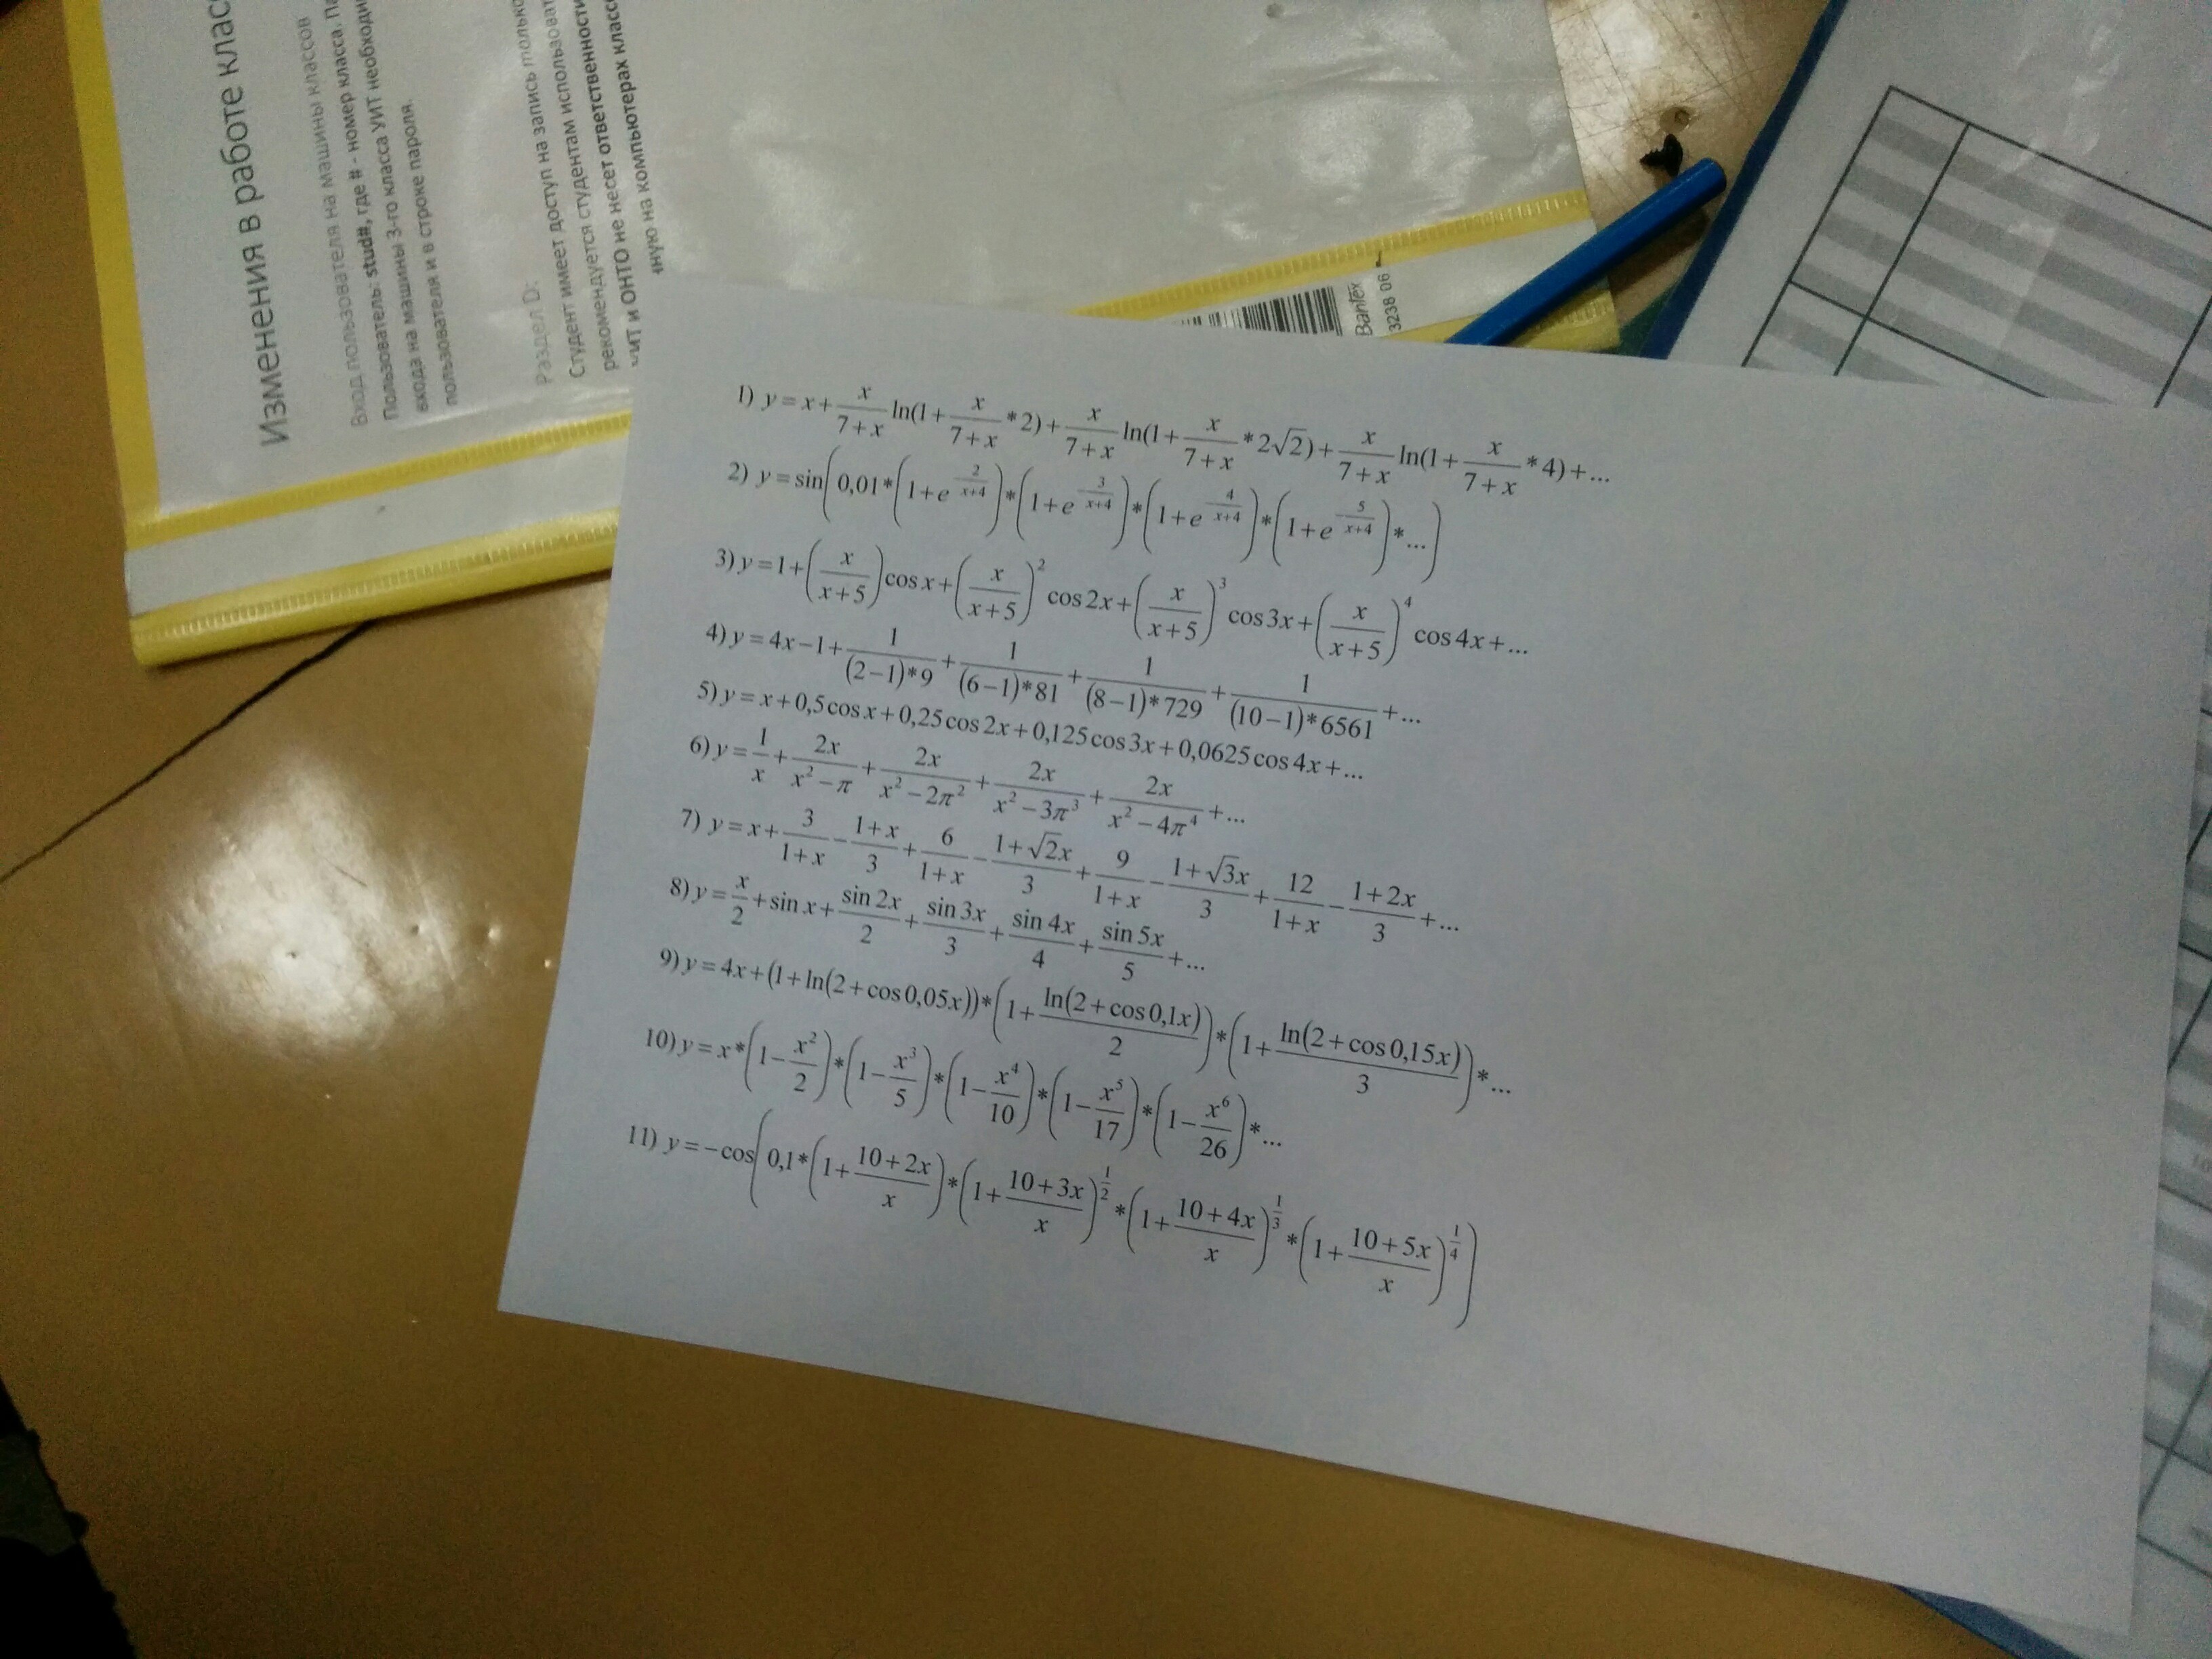 Изменения в работе клас
Вход пользователя на машины классов
Пользователь: stud#, где # - номер класса. Па
входа на машины 3-го класса УИТ необходи
пользователя и в строке пароля.
Раздел D:
Студент имеет доступ на запись только
рекомендуется студентам использоват
УИТ и ОНТО не несет ответственности
нную на компьютерах класс
Bantex
3238 06
1) y = x + x/(7+x) ln(1 + x/(7+x) * 2) + x/(7+x) ln(1 + x/(7+x) * 2√2) + x/(7+x) ln(1 + x/(7+x) * 4) + ...
2) y = sin(0,01 * (1 + e^(-2/(x+4))) * (1 + e^(-3/(x+4))) * (1 + e^(-4/(x+4))) * (1 + e^(-5/(x+4))) * ...)
3) y = 1 + (x/(x+5)) cos x + (x/(x+5))^2 cos 2x + (x/(x+5))^3 cos 3x + (x/(x+5))^4 cos 4x + ...
4) y = 4x − 1 + 1/((2−1)*9) + 1/((6−1)*81) + 1/((8−1)*729) + 1/((10−1)*6561) + ...
5) y = x + 0,5 cos x + 0,25 cos 2x + 0,125 cos 3x + 0,0625 cos 4x + ...
6) y = 1/x + 2x/(x² − π) + 2x/(x² − 2π²) + 2x/(x² − 3π³) + 2x/(x² − 4π⁴) + ...
7) y = x + 3/(1+x) − (1+x)/3 + 6/(1+x) − (1+√2x)/3 + 9/(1+x) − (1+√3x)/3 + 12/(1+x) − (1+2x)/3 + ...
8) y = x/2 + sin x + sin 2x/2 + sin 3x/3 + sin 4x/4 + sin 5x/5 + ...
9) y = 4x + (1 + ln(2 + cos 0,05x)) * (1 + ln(2 + cos 0,1x)/2) * (1 + ln(2 + cos 0,15x)/3) * ...
10) y = x * (1 − x²/2) * (1 − x³/5) * (1 − x⁴/10) * (1 − x⁵/17) * (1 − x⁶/26) * ...
11) y = −cos(0,1 * (1 + (10+2x)/x) * (1 + (10+3x)/x)^(1/2) * (1 + (10+4x)/x)^(1/3) * (1 + (10+5x)/x)^(1/4))